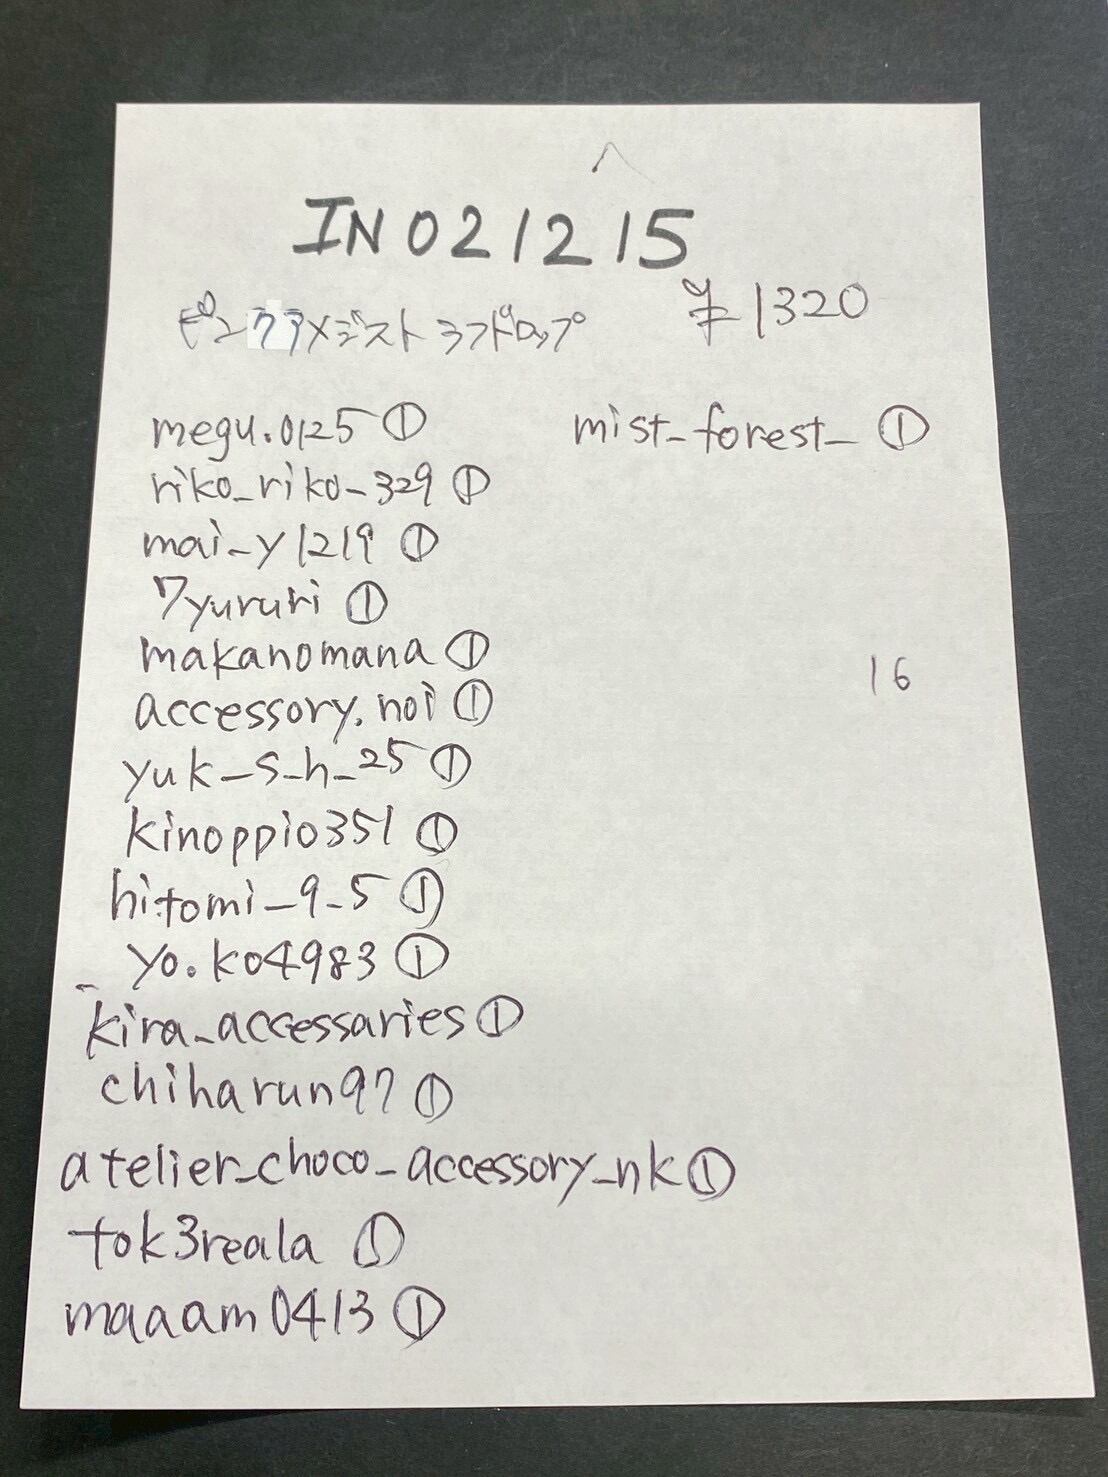 IN021215
ピンクアメジスト ラフドロップ ¥1320
megu.0125 ①
riko_riko_329 ①
mai_y1219 ①
7yururi ①
makanomana ①
accessory.noi ①
yuk_s_h_25 ①
kinoppio351 ①
hitomi_9_5 ①
yo.ko4983 ①
kira_accessaries ①
chiharun97 ①
atelier_choco_accessory_nk ①
tok3reala ①
maaam0413 ①
mist_forest_ ①
16